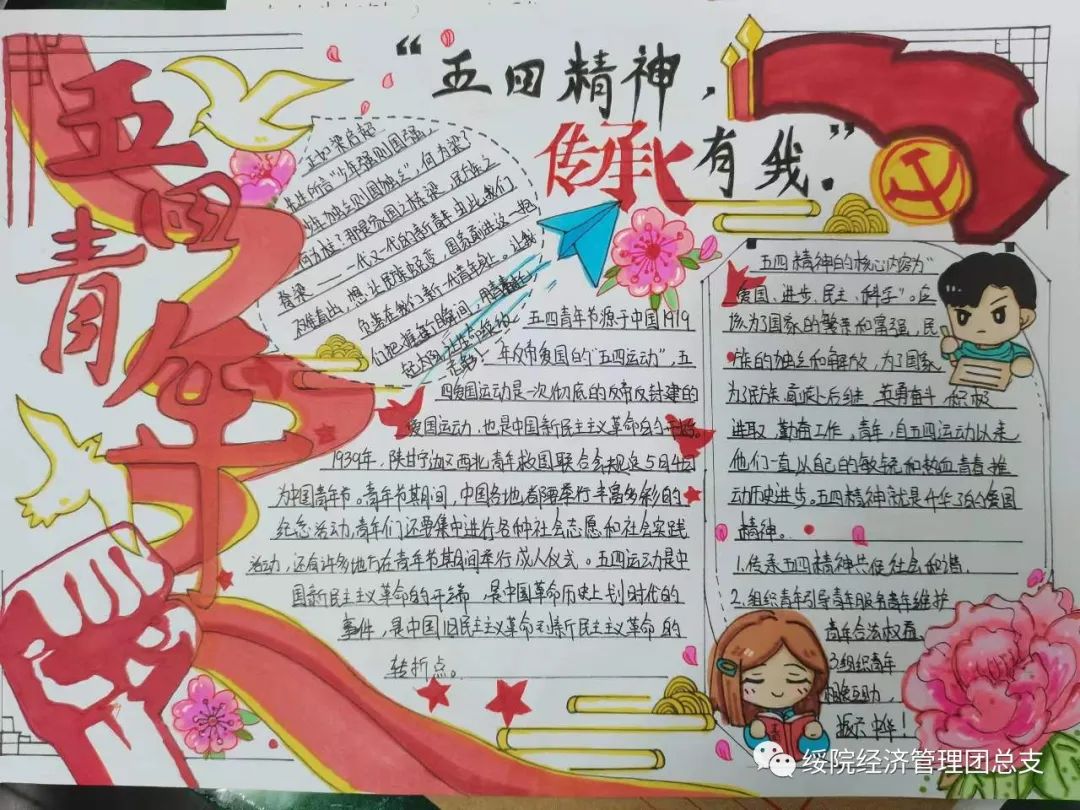 五四青年
“五四精神，
传承有我”
正如梁启超
先生所言“少年强则国强，
独立则国独立”，何为梁？
何为柱？那是家国之柱梁，民族之
脊梁——一代又一代的新青年。由此我们
不难看出，想让民族蜕变，国家前进这一担
负落在我们新一代青年身上。让我
们把握每个瞬间，用青春
五四青年节源于中国1919
年反帝爱国的“五四运动”，五
四爱国运动是一次彻底的反帝反封建的
爱国运动，也是中国新民主主义革命的开始。
1939年，陕甘宁边区西北青年救国联合会规定5月4日
为中国青年节。青年节期间，中国各地都要举行丰富多彩的
纪念活动，青年们还要集中进行各种社会志愿和社会实践
活动，还有许多地方在青年节期间举行成人仪式。五四运动是中
国新民主主义革命的开端，是中国革命历史上划时代的
事件，是中国旧民主主义革命到新民主主义革命的
转折点。
五四精神的核心内容为“
爱国、进步、民主、科学”。应
该为了国家的繁荣和富强，民
族的独立和解放，为了国家
为了民族，前赴后继，英勇奋斗，积极
进取，勤奋工作。青年，自五四运动以来
他们一直以自己的敏锐和热血青春推
动历史进步。五四精神就是升华了的爱国
精神。
1.传承五四精神共促社会和谐.
2.组织青年引导青年服务青年维护
青年合法权益.
3.组织青年
相亲互助，
振兴中华！
绥院经济管理团总支